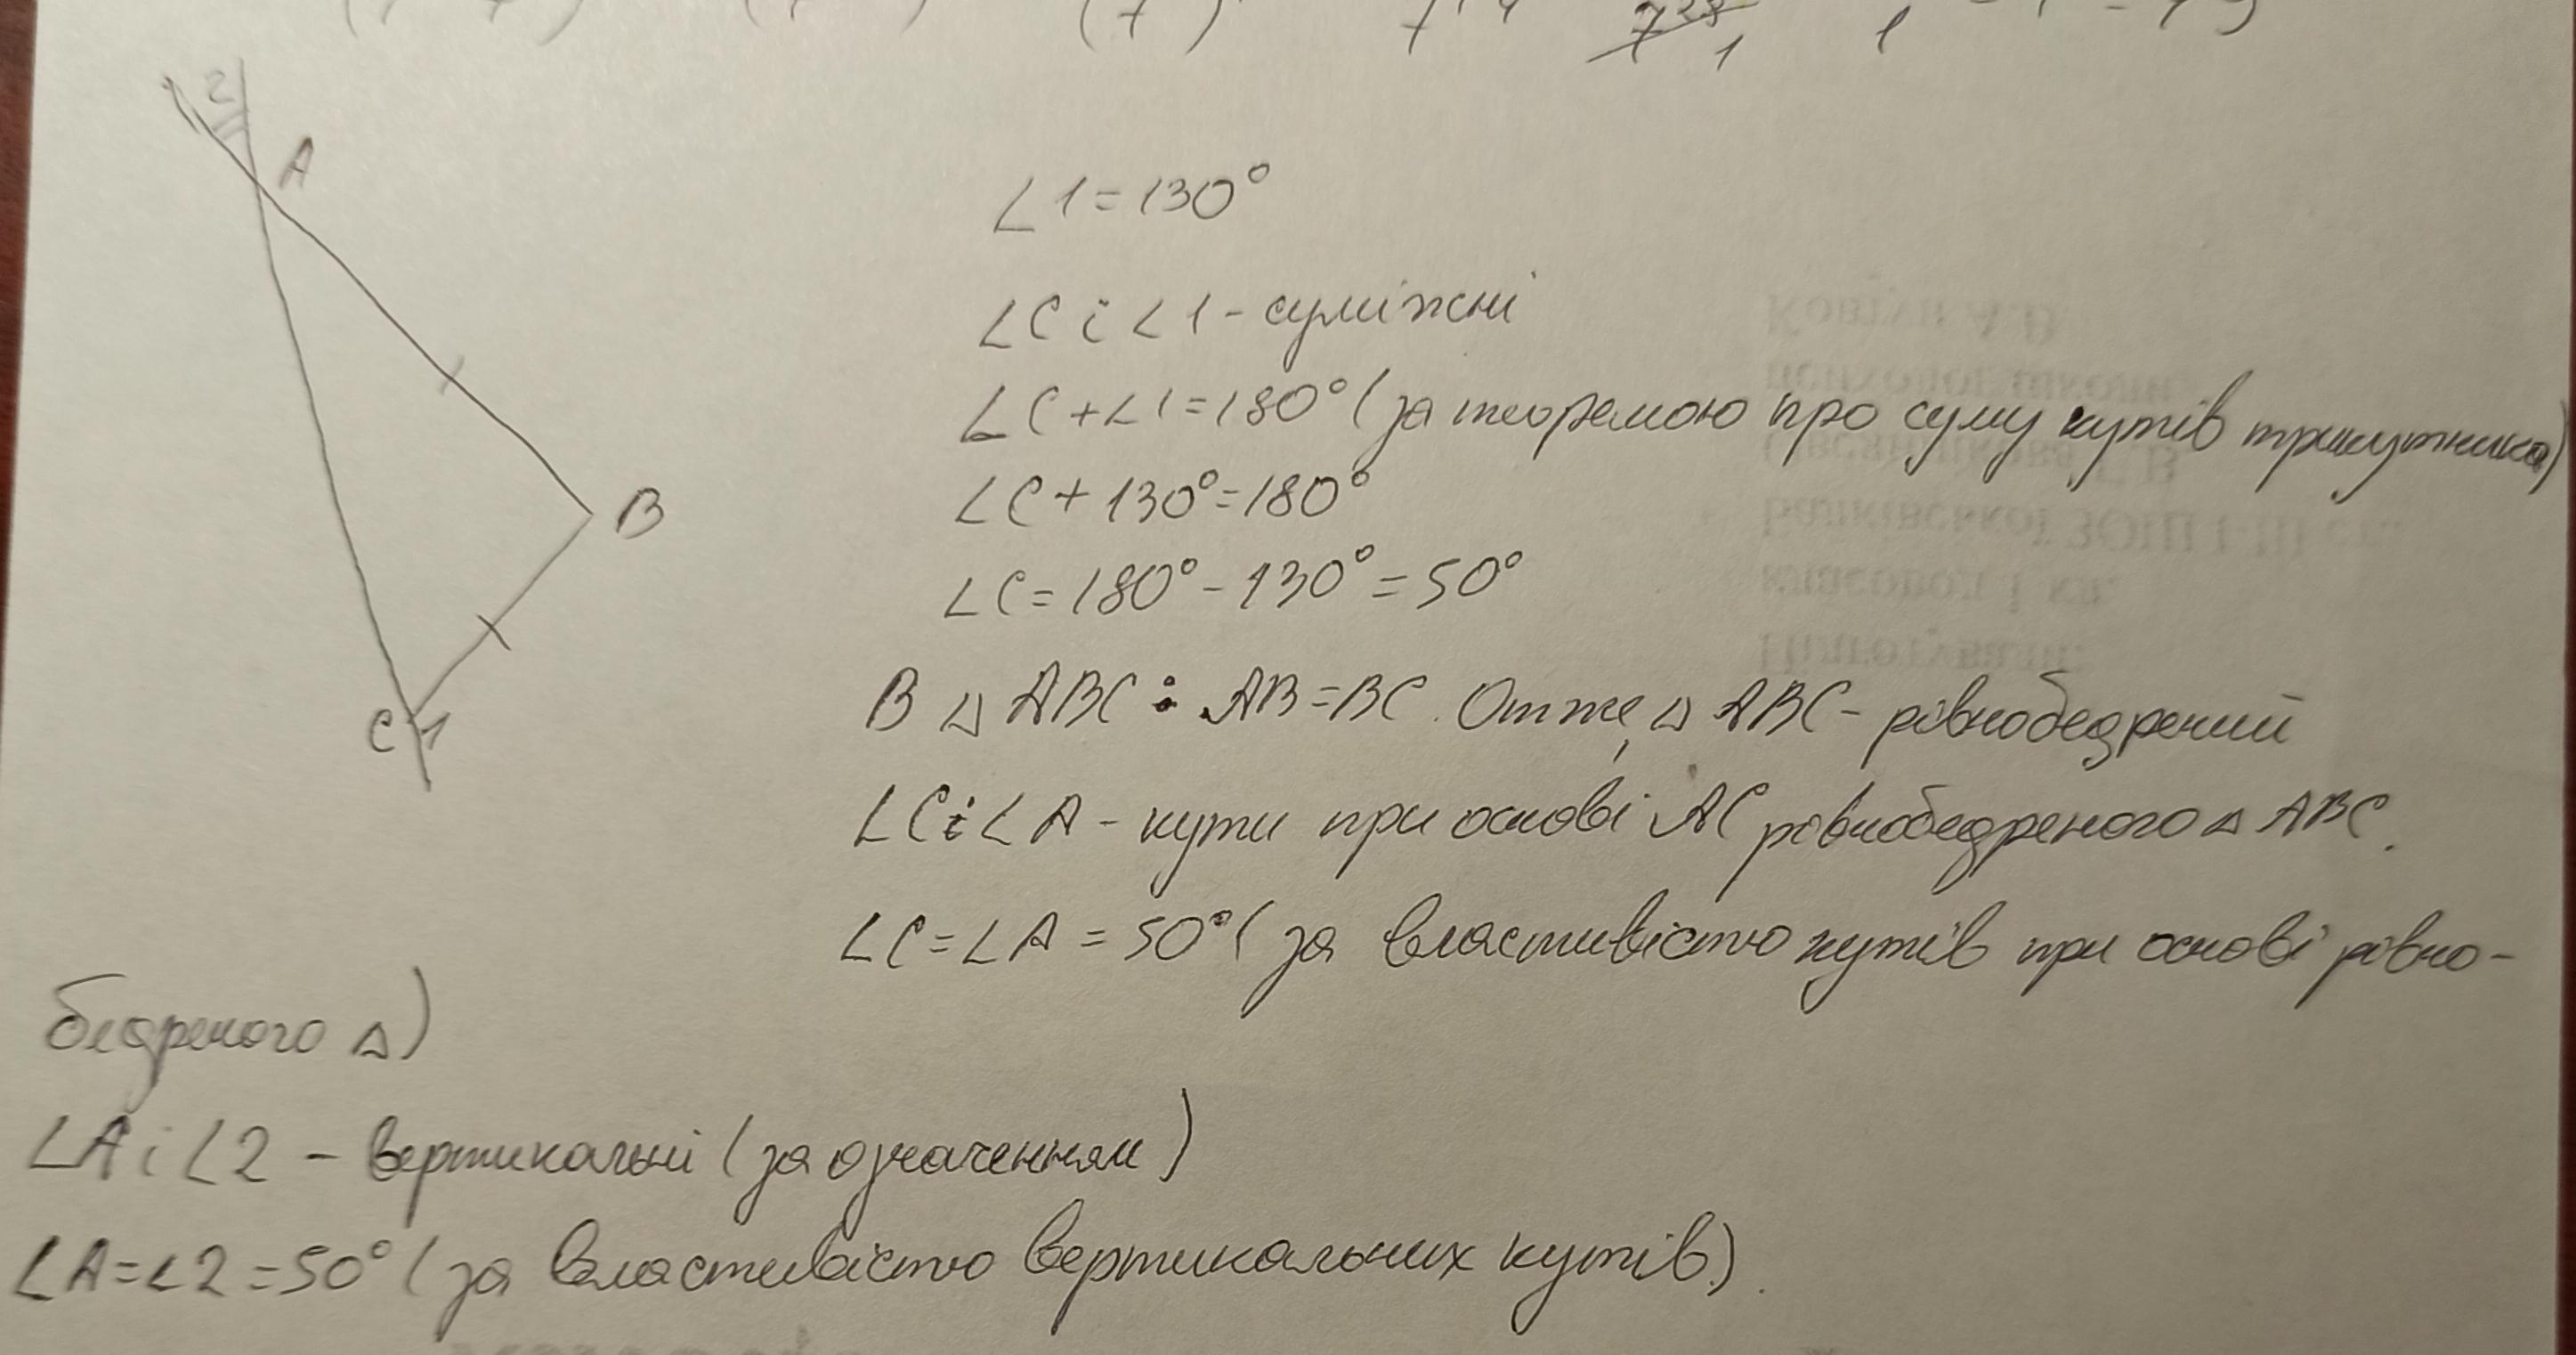 2
A
B
C 1
∠1=130°
∠C і ∠1 - суміжні
∠C+∠1=180° (за теоремою про суму кутів трикутника)
∠C+130°=180°
∠C=180°-130°=50°
В △ ABC : AB=BC. Отже, △ ABC - рівнобедрений
∠C і ∠A - кути при основі AC рівнобедреного △ ABC.
∠C=∠A=50° (за властивістю кутів при основі рівно-
бедреного △)
∠A і ∠2 - вертикальні (за означенням)
∠A=∠2=50° (за властивістю вертикальних кутів).